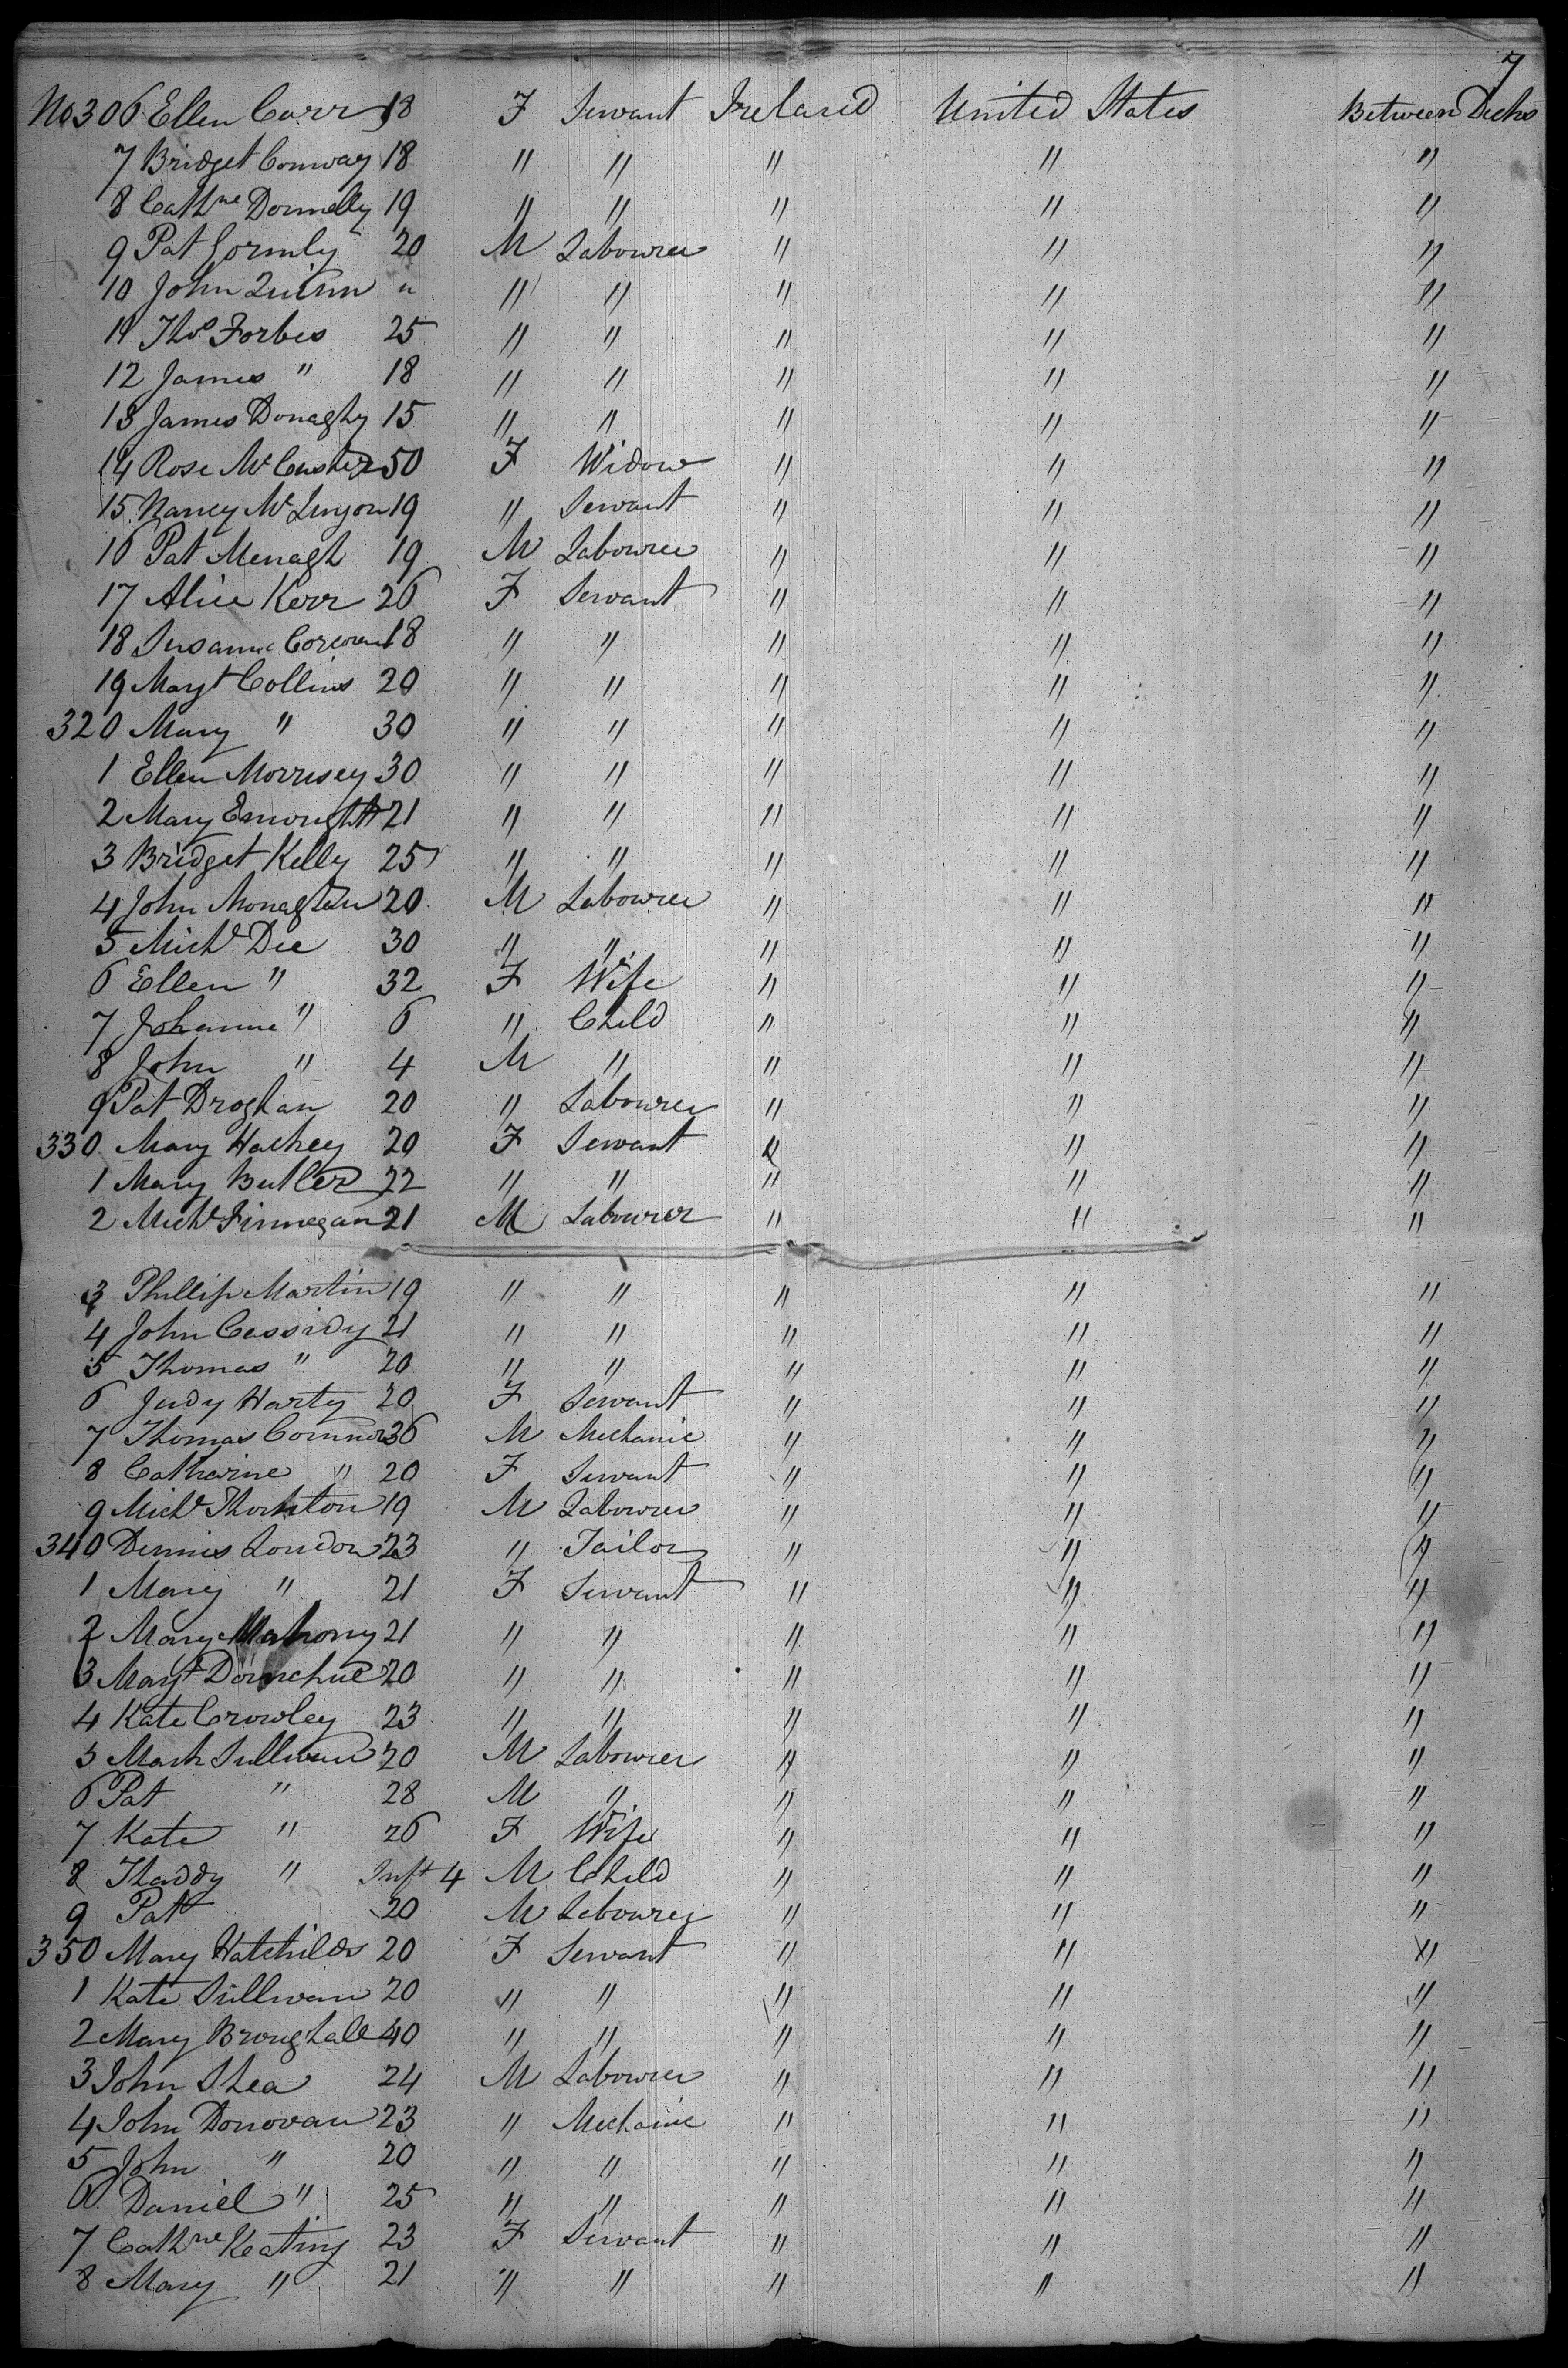 7
No 306 Ellen Carr 18 F Servant Ireland United States Between Decks
7 Bridget Conway 18 " " " " "
8 Cathne Donnelly 19 " " " " "
9 Pat Gormly 20 M Labourer " " "
10 John Quinn " " " " " "
11 Thos Forbes 25 " " " " "
12 James " 18 " " " " "
13 James Donaghy 15 " " " " "
14 Rose 50 F Widow " " "
15 Nancy 19 " Servant " " "
16 Pat Menagh 19 M Labourer " " "
17 Alice Kerr 26 F Servant " " "
18 Susanna Corcoran 18 " " " " "
19 Mayt Collins 20 " " " " "
320 Mary " 30 " " " " "
1 Ellen Morrisey 30 " " " " "
2 Mary Enwright 21 " " " " "
3 Bridget Kelly 25 " " " " "
4 John Monaghan 20 M Labourer " " "
5 Michl Dee 30 " " " " "
6 Ellen " 32 F Wife " " "
7 Johanna " 6 " Child " " "
8 John " 4 M " " " "
9 Pat Droghan 20 " Labourer " " "
330 Mary Hackey 20 F Servant " " "
1 Mary Butler 22 " " " " "
2 Michl Finnegan 21 M Labourer " " "
3 Phillip Martin 19 " " " " "
4 John Cassidy 21 " " " " "
5 Thomas " 20 " " " " "
6 Judy Harty 20 F Servant " " "
7 Thomas Connor 36 M Mechanic " " "
8 Catharine " 20 F Servant " " "
9 Michl Thornton 19 M Labourer " " "
340 Dennis London 23 " Tailor " " "
1 Mary " 21 F Servant " " "
2 Mary Mahony 21 " " " " "
3 Mayt Donnchue 20 " " " " "
4 Kate Crowley 23 " " " " "
5 Mark Sullivan 20 M Labourer " " "
6 Pat " 28 M " " " "
7 Kate " 26 F Wife " " "
8 Thaddy " Inft 4 M Child " " "
9 Pat 20 M Labourer " " "
350 Mary Hatchilds 20 F Servant " " "
1 Kate Sullivan 20 " " " " "
2 Mary Broughall 40 " " " " "
3 John Shea 24 M Labourer " " "
4 John Donovan 23 " Mechanic " " "
5 John " 20 " " " " "
6 Daniel " 25 " " " " "
7 Cathne Keating 23 F Servant " " "
8 Mary " 21 " " " " "